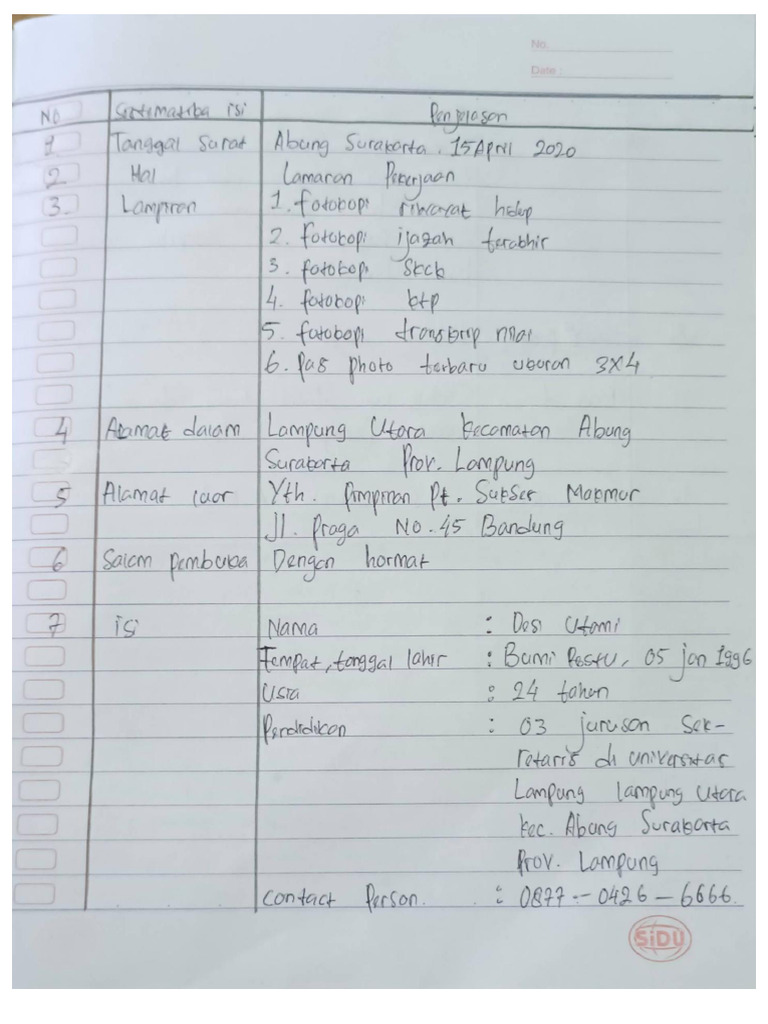 No.
Date :
No Sistimatika isi Penjelasan
1 Tanggal Surat Abung Surakarta. 15 April 2020
2 Hal Lamaran Pekerjaan
3. Lampiran 1. fotokopi riwayat hidup
2. fotokopi ijazah terakhir
3. fotokopi Skck
4. fotokopi ktp
5. fotokopi transkrip nilai
6. Pas photo terbaru ukuran 3x4
4 Alamat dalam Lampung Utara kecamatan Abung
Surakarta Prov. Lampung
5 Alamat luar Yth. Pimpinan Pt. Sukses Makmur
Jl. Praga No. 45 Bandung
6 Salam pembuka Dengan hormat
7 isi Nama : Desi Utami
Tempat, tanggal lahir : Bumi Restu, 05 jan 1996
Usia : 24 tahun
Pendidikan : 03 jurusan Sek-
retaris di universitas
Lampung lampung Utara
kec. Abung Surakarta
Prov. Lampung
Contact Person. : 0877-0426-6666.
SiDU